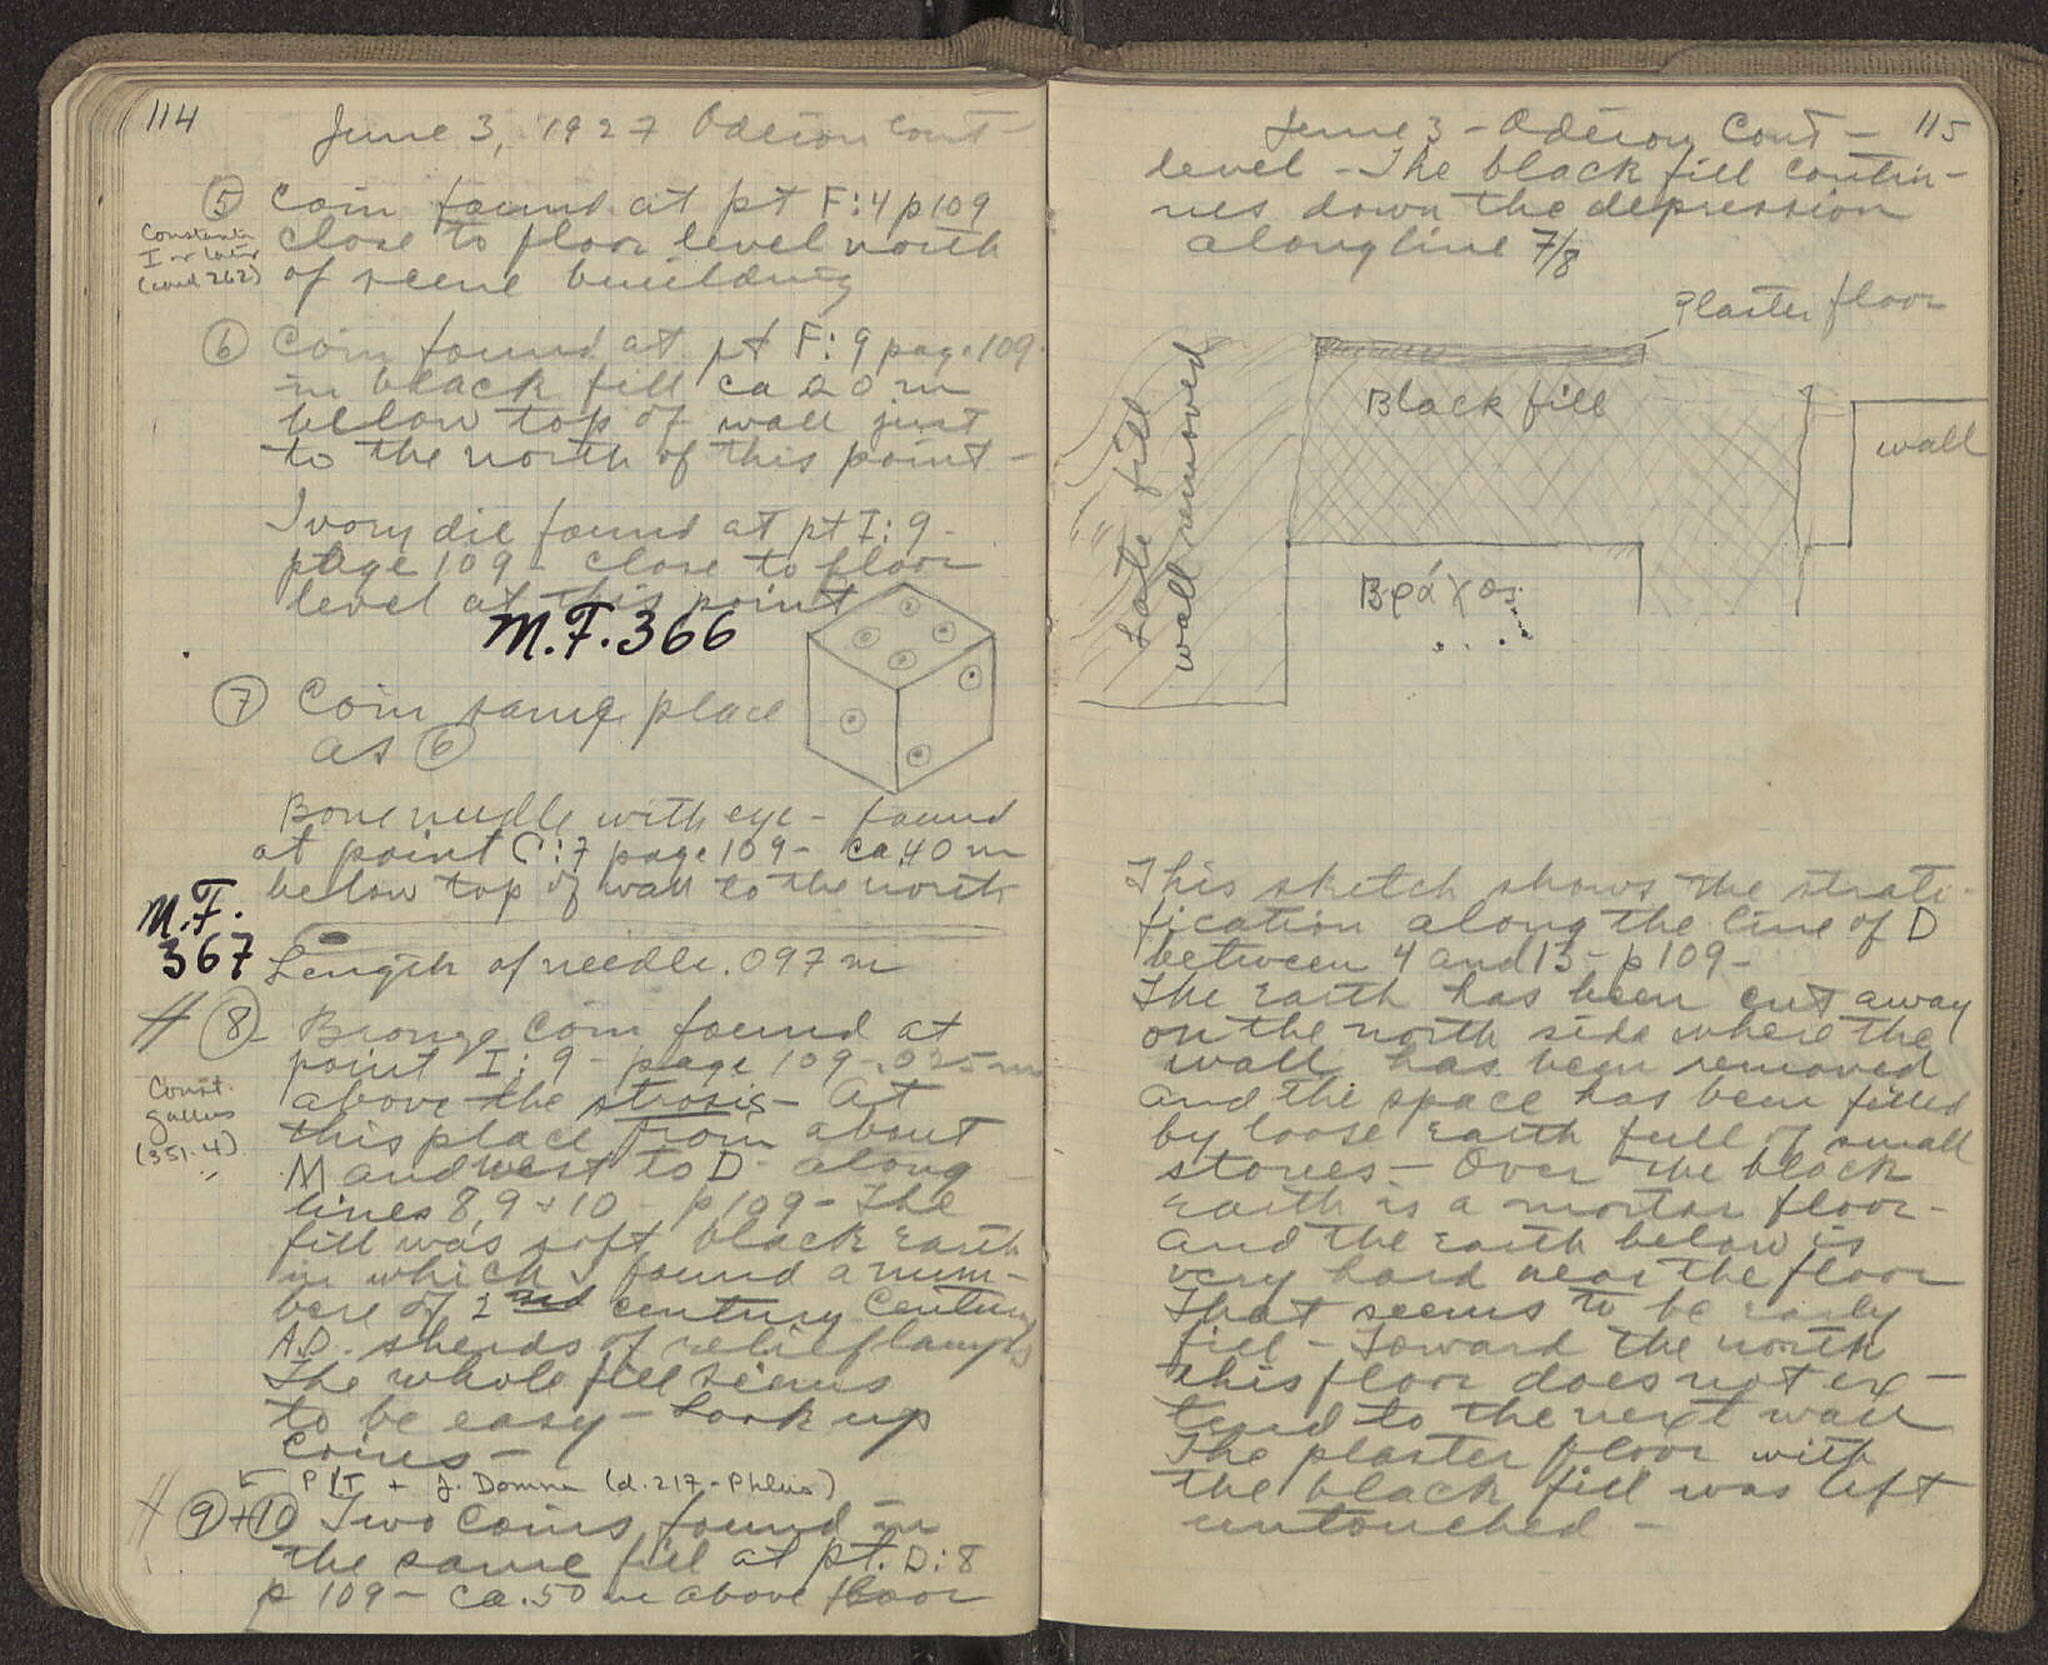 114
June 3, 1927 Odeion Cont-
⑤ Coin found at pt F:4 p109
close to floor level north
of scene building
Constantin
I or later
⑥ Coin found at pt F:9 page 109.
in black fill ca
below top of wall just
to the north of this point-
Ivory die found at pt I:9-
page 109- close to floor
level at this point
M.F.366
⑦ Coin same place
as ⑥
Bone needle with eye- found
at point C:7 page 109- ca.40 m
below top of wall to the north
M.F.
367
Length of needle .097 m
# ⑧- Bronze Coin found at
point I:9- page 109-.025 m
above the strosis- At
this place from about
M and west to D- along
lines 8,9+10 - p109- The
fill was soft black earth
in which I found a num-
bere of 2nd century Century
A.D. sherds of relief lamps
The whole fill seems
to be easy- Look up
coins-
Const.
gallus
(351.4)
+ J. Domna (d.217-Phlius)
# ⑨+⑩ Two Coins found in
the same fill at pt. D:8
p 109- ca.50 m above floor
June 3 - Odeion Cont- 115
level - The black fill contin-
ues down the depression
along line 7/8
Plaster floor
Black fill
wall
Late fill
wall removed
Βράχος
This sketch shows the strati-
fication along the line of D
between 4 and 13- p109-
The earth has been cut away
on the north side where the
wall has been removed
and the space has been filled
by loose earth full of small
stones- Over the black
earth is a mortar floor-
and the earth below is
very hard near the floor
That seems to be early
fill- Toward the north
this floor does not ex-
tend to the next wall
The plaster floor with
the black fill was left
untouched-